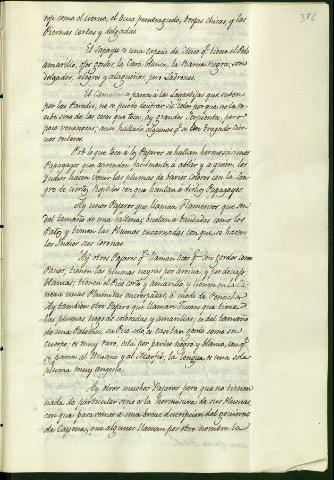 378
rosa como el cuervo, el Ocico puntiagudo, Orejas chicas, y las
Piernas cortas y delgadas.
El Sapajou es una especie de Mico qe. tiene el Pelo
amarillo, ojos gordos, la Cara blanca, la Barba negra; son
delgados, alegres y alagueños, pero Ladrones.
El Camaleon se parece a las Lagartijas que suben
por las Paredes, no se puede decifrar su color por que no la re-
cibe sino de las cosas que toca; ay grandes Serpientes, pero
poco venenosas; aun hallado algunas qe. se han tragado Cier-
vos enteros.
Por lo que toca a los Pajaros se hallan hermosissimos
Papagayos que aprenden facilmente a ablar y a quien los
Indios hacen venir las plumas de barios colores con la San-
gre de ciertos Reptiles con que huntan a dichos Papagayos.
Ay unos Pajaros que llaman Flamencos que son
del tamaño de una Gallina; buelan a bandadas como los
Patos, y tienen las Plumas encarnadas con que se hacen
los Indios sus coronas.
Ay otros Pajaros qe. llaman Ocos qe. son gordos como
Pavos, tienen las plumas negras por arriva, y por debajo
blancas; tienen el Pico corto y amarillo, y tienen en la Ca-
veza unas Plumitas encrespadas, a modo de Penacho.
Ay tambien otro Pajaro que llaman Tucan que tiene
las plumas negras coloradas y amarillas; es del tamaño
de una Paloma; su Pico solo es casi tan gordo como su
cuerpo; es muy raro, esta por partes negro y blanco, con qe.
se parece al Hevano y al Marfil; la lengua es una sola
pluma muy angosta.
Ay otros muchos Pajaros, pero que no tienen
nada de particular sino es la hermosura de sus Plumas,
con que pasaremos a una breve descripcion del govierno
de Cayena, que algunos llaman por otro nombre la